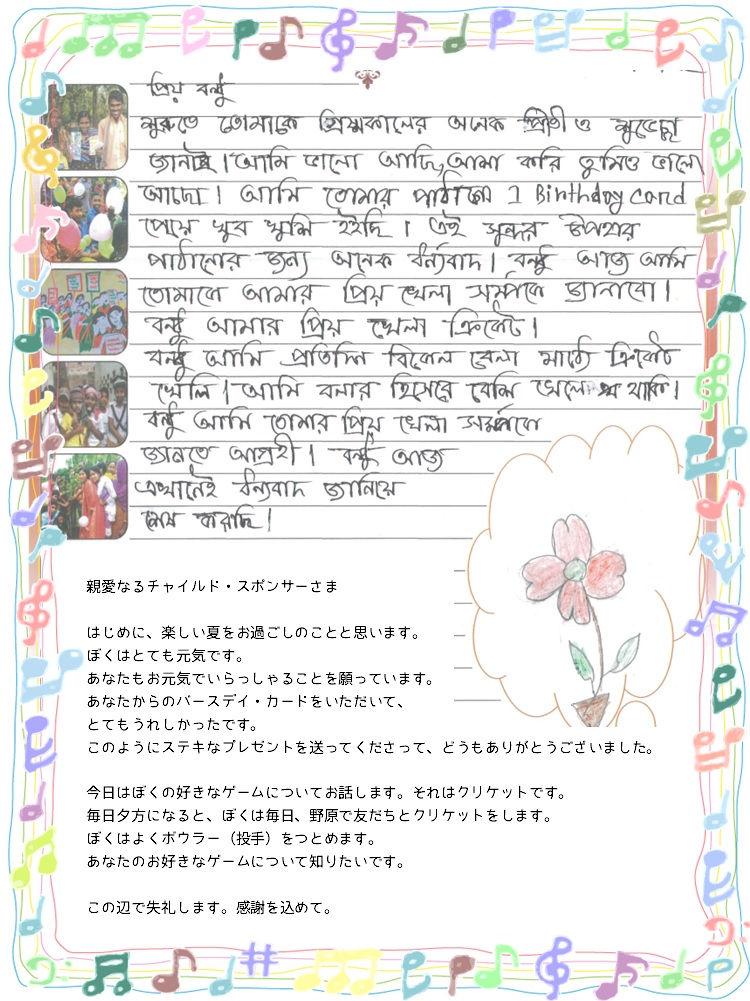 প্রিয় বন্ধু
শুরুতে তোমাকে গ্রিষ্মকালের অনেক প্রীতী ও শুভেচ্ছা
জানাই। আমি ভালো আছি, আসা করি তুমিও ভালো
আছো। আমি তোমার পাঠানো 1 Birthday card
পেয়ে খুব খুশি হইছি। এই সুন্দর উপহার
পাঠানোর জন্য অনেক ধন্যবাদ। বন্ধু আজ আমি
তোমাকে আমার প্রিয় খেলা সর্ম্পকে জানাবো।
বন্ধু আমার প্রিয় খেলা ক্রিকেট।
বন্ধু আমি প্রতিদিন বিকেল বেলা মাঠে ক্রিকেট
খেলি। আমি বলার হিসেবে বেশি খেলে থাকি।
বন্ধু আমি তোমার প্রিয় খেলা সর্ম্পকে
জানতে আগ্রহী। বন্ধু আজ
এখানেই ধন্যবাদ জানিয়ে
শেষ করছি।
親愛なるチャイルド・スポンサーさま
はじめに、楽しい夏をお過ごしのことと思います。
ぼくはとても元気です。
あなたもお元気でいらっしゃることを願っています。
あなたからのバースデイ・カードをいただいて、
とてもうれしかったです。
このようにステキなプレゼントを送ってくださって、どうもありがとうございました。
今日はぼくの好きなゲームについてお話します。それはクリケットです。
毎日夕方になると、ぼくは毎日、野原で友だちとクリケットをします。
ぼくはよくボウラー（投手）をつとめます。
あなたのお好きなゲームについて知りたいです。
この辺で失礼します。感謝を込めて。